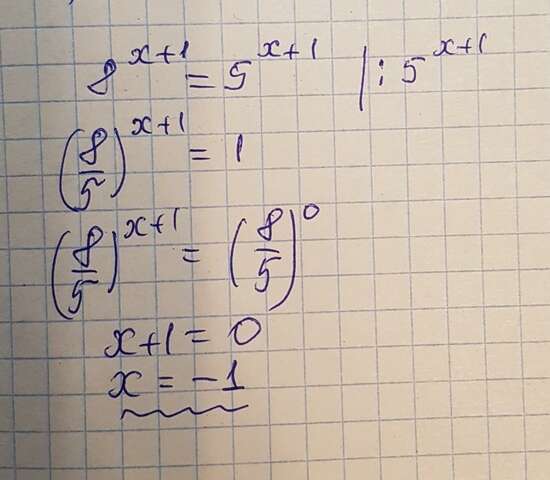 8^{x+1} = 5^{x+1} | : 5^{x+1}
(8/5)^{x+1} = 1
(8/5)^{x+1} = (8/5)^0
x+1 = 0
x = -1